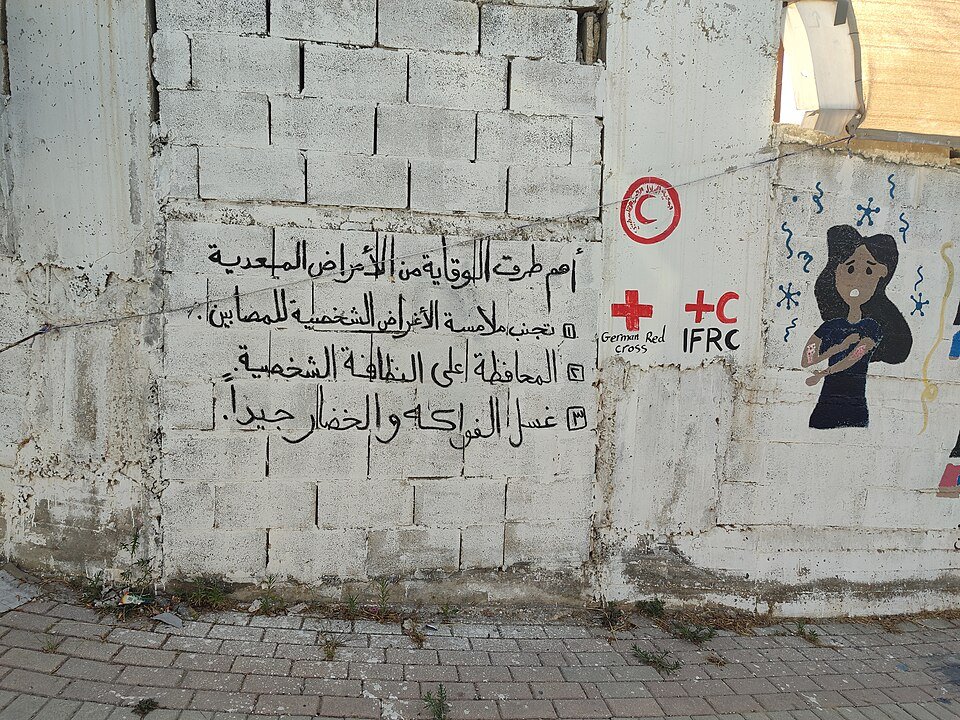 أهم طرق الوقاية من الأغراض المعدية
١ تجنب ملامسة الأغراض الشخصية للمصابين.
٢ المحافظة على النظافة الشخصية.
٣ غسل الفواكه والخضار جيداً.
German Red
cross
IFRC